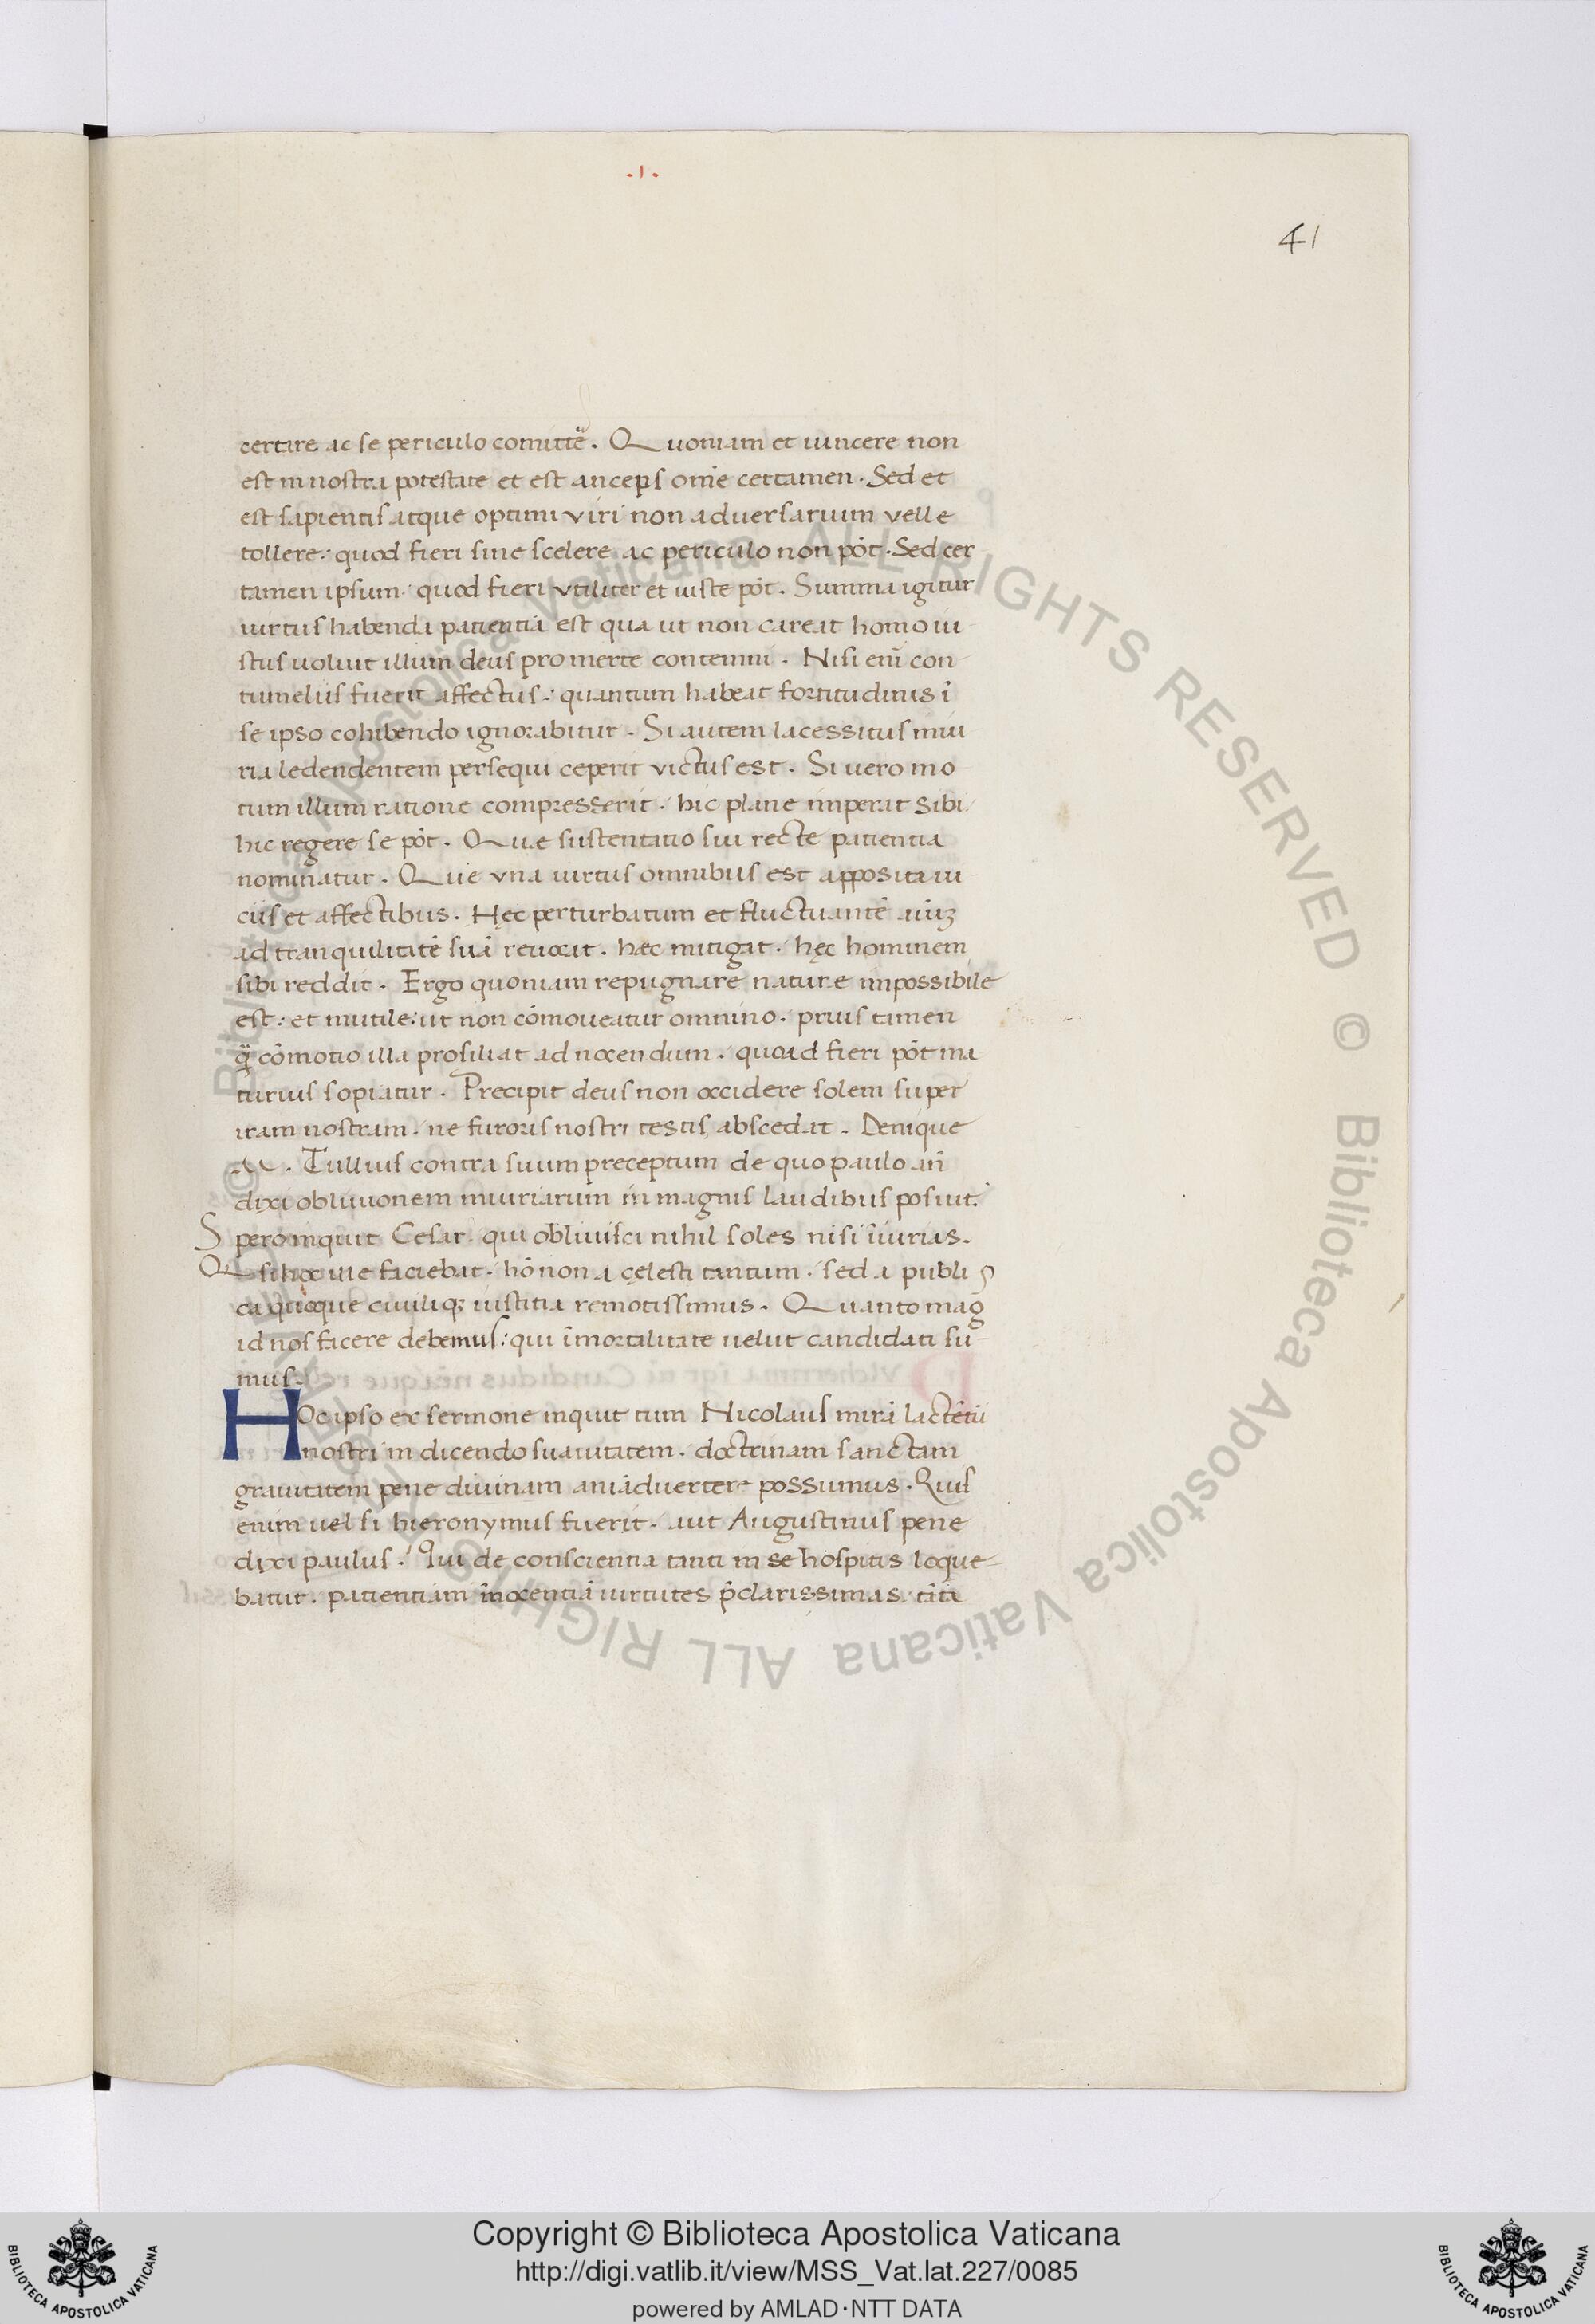 .1.
41
certare ac se periculo comittẽ. Quoniam et uincere non
est in nostra potestate et est anceps om̃e certamen. Sed et
est sapientis atque optimi viri non adversarium velle
tollere: quod fieri sine scelere ac periculo non põt. Sed cer
tamen ipsum quod fieri vtiliter et iuste põt. Summa igitur
uirtus habenda patientia est qua ut non careat homo iu-
stus uoluit illum deus pro inerte contemni. Nisi eni᷈ con-
tumeliis fuerit affectus: quantum habeat fortitudinis ĩ
se ipso cohibendo ignorabitur. Si autem lacessitus iniu
ria ledendentem persequi ceperit victus est. Si uero mo-
tum illum ratione compresserit. hic plane imperat sibi
hic regere se põt. Que sustentatio sui recte patientia
nominatur. Que vna uirtus omnibus est apposita ui-
ciis et affectibus. Hęc perturbatum et fluctuantẽ aĩuʒ
ad tranquilitatẽ suã reuocat. hec mitigat. hęc hominem
sibi reddit. Ergo quoniam repugnare nature impossibile
est: et inutile: ut non cõmoueatur omnino. prius tamen
q̃ cõmotio illa prosiliat ad nocendum. quoad fieri põt ma
turius sopiatur. Precipit deus non occidere solem super
iram nostram. ne furoris nostri testis abscedat. Denique
M. Tullius contra suum preceptum de quo paulo añ
dixi obliuionem iniuriarum in magnis laudibus posuit.
Spero inquit Cesar. qui obliuisci nihil soles nisi iĩurias.
Q si hoc ille faciebat. hõ non a cęlesti tantum. sed a publi
ca quoque ciuiliqʒ iustitia remotissimus. Quanto mag
id nos facere debemus: qui ĩmortalitate uelut candidati su-
mus.
HOc ipso ex sermone inquit tum Nicolaus mirã lactẽtii
nostri in dicendo suauitatem. doctrinam sanctam
grauitatem pene diuinam aniãduertere possumus. Quis
enim uel si hieronymus fuerit. aut Augustinus pene
dixi paulus. Qui de conscientia tanti in se hospitis loque-
batur. patientiam ĩnocentiã uirtutes p̃clarissimas tãta
Copyright © Biblioteca Apostolica Vaticana
http://digi.vatlib.it/view/MSS_Vat.lat.227/0085
powered by AMLAD·NTT DATA
BIBLIOTECA APOSTOLICA VATICANA
BIBLIOTECA APOSTOLICA VATICANA
© Biblioteca Apostolica Vaticana ALL RIGHTS RESERVED © Biblioteca Apostolica Vaticana ALL RIGHTS RESERVED